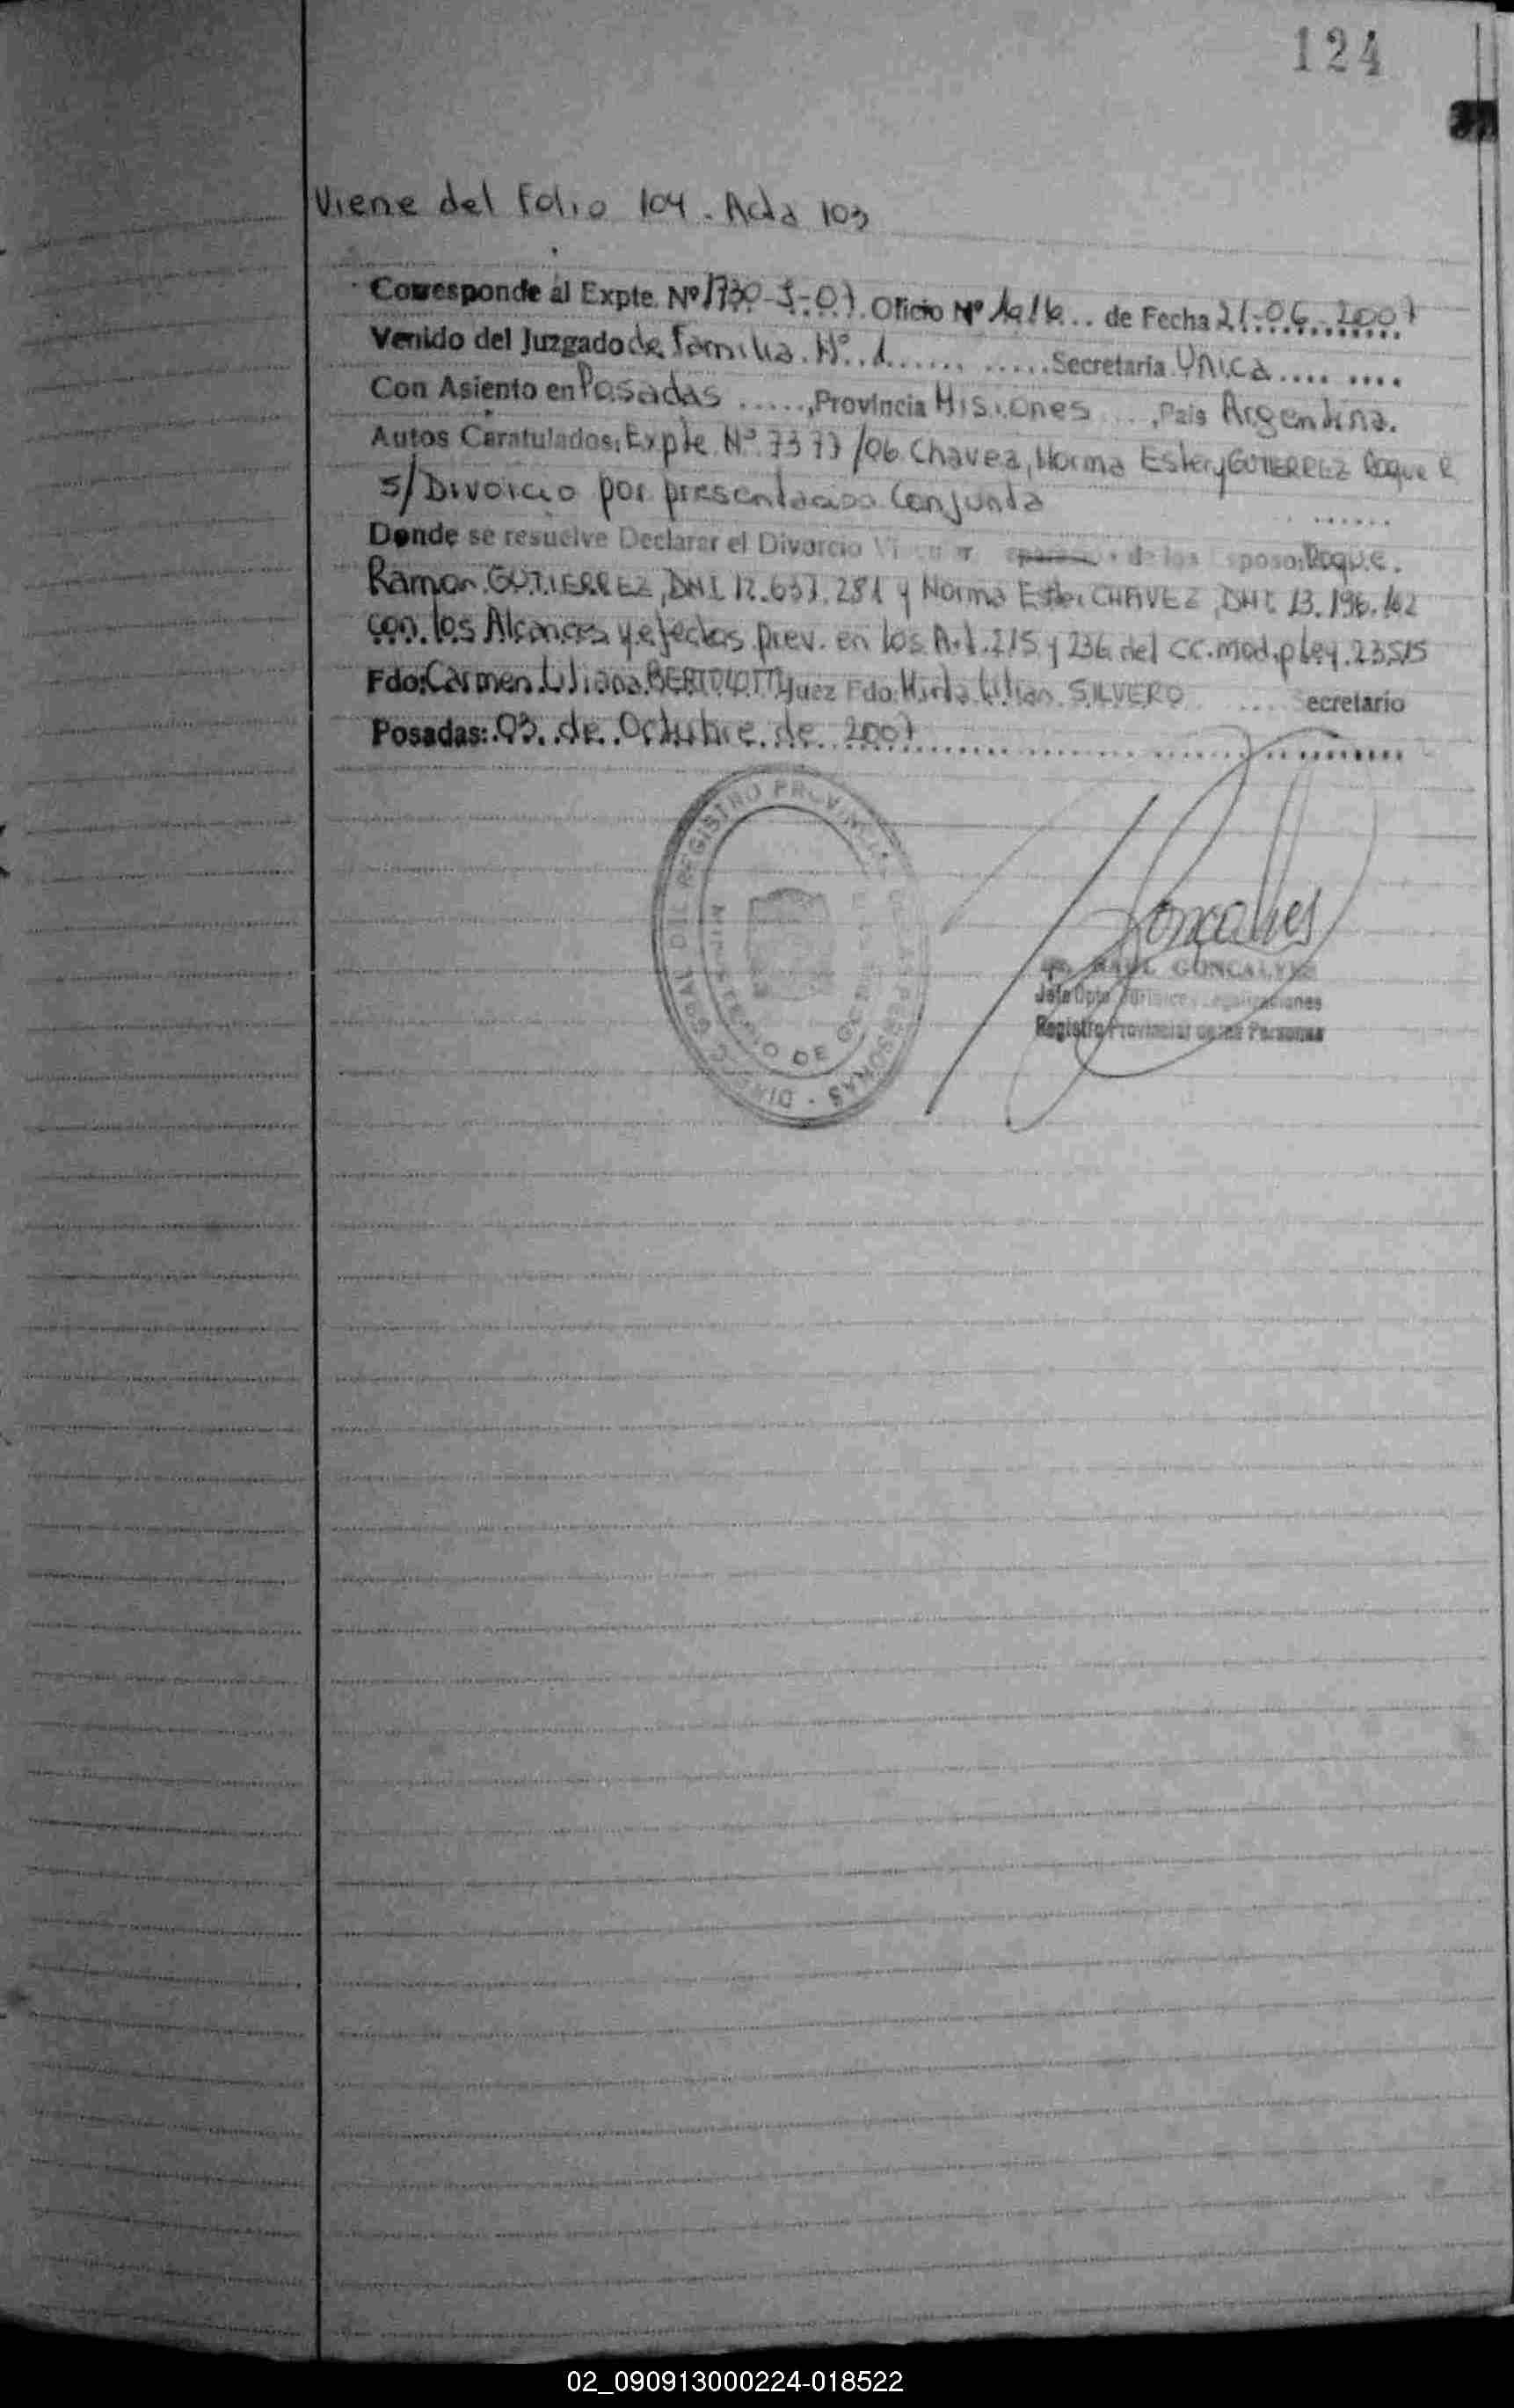 124
Viene del Folio 104. Acta 103
Corresponde al Expte. Nº 1730-S-07. Oficio Nº de Fecha 21-06-2007
Venido del Juzgado de Familia Nº 1 Secretaria Unica
Con Asiento en Posadas ,Provincia Misiones ,Pais Argentina.
Autos Caratulados: Expte. Nº 7377/06 Chavez, Norma Ester y GUTIERREZ Roque R
s/Divorcio por presentacion Conjunta
Donde se resuelve Declarar el Divorcio de los Esposos: Roque
Ramon GUTIERREZ, DNI 12.637.281 y Norma Ester CHAVEZ, DNI 13.196.162
con los Alcances y efectos prev. en los Art. 215 y 236 del CC. mod. p Ley. 23515
Fdo: Carmen Liliana BERTOLOTTI Juez Fdo: Mirta Lilian SILVERO Secretario
Posadas: 03 de Octubre de 2007
DIRECC. GRAL. DEL REGISTRO PROVINCIAL DE LAS PERSONAS
MINISTERIO DE GOBIERNO
Goncalves
RAUL GONCALVES
Jefe Dpto. Legalizaciones
Registro Provincial de las Personas
02_090913000224-018522